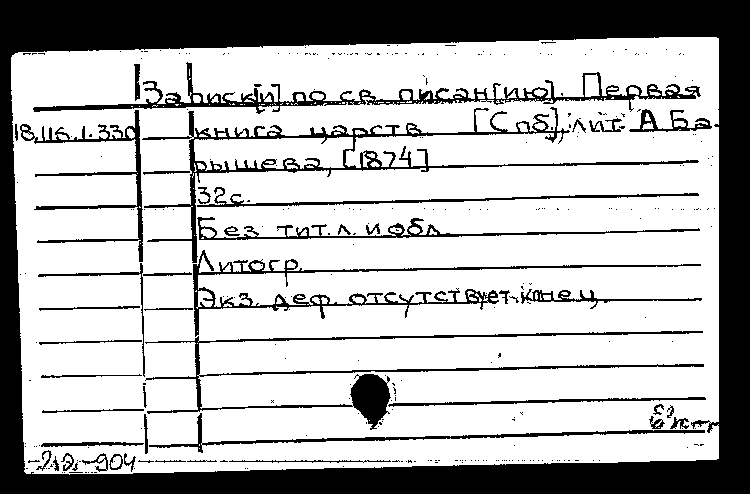 Записк[и] по св. писан[ию]. Первая
18.116.1.330 книга царств [Спб], лит. А Ба-
рышева, [1874]
32с.
Без тит. л. и обл.
Литогр.
Экз. деф. отсутствует конец.
212-904